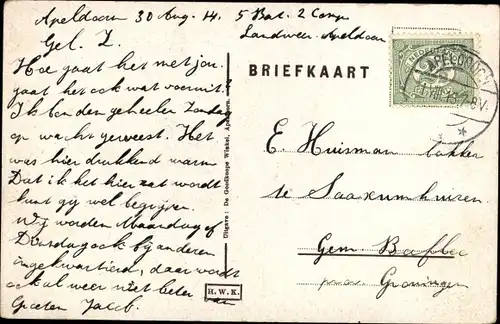 Apeldoorn 30 Aug. 14. 5 Bat. 2 Comp
Landweer Apeldoorn
Gel. Z.
Hoe gaat het met jou.
gaat het ook wat vooruit.
Ik ben den geheelen Zondag
op wacht geweest. Het
was hier drukkend warm
Dat ik het hier zat wordt
kunt gij wel begrijpen.
Wij worden Maandag of
Dinsdag ook bij anderen
ingekwartierd, daar wordt
ook al weer niet beter
Groeten Jacob.
Uitgave: De Goedkoope Winkel, Apeldoorn.
H. W. K.
BRIEFKAART
APELDOORN
E. Huisman bakker
te Saaxumhuizen
Gem. Bafloo
prov. Groningen